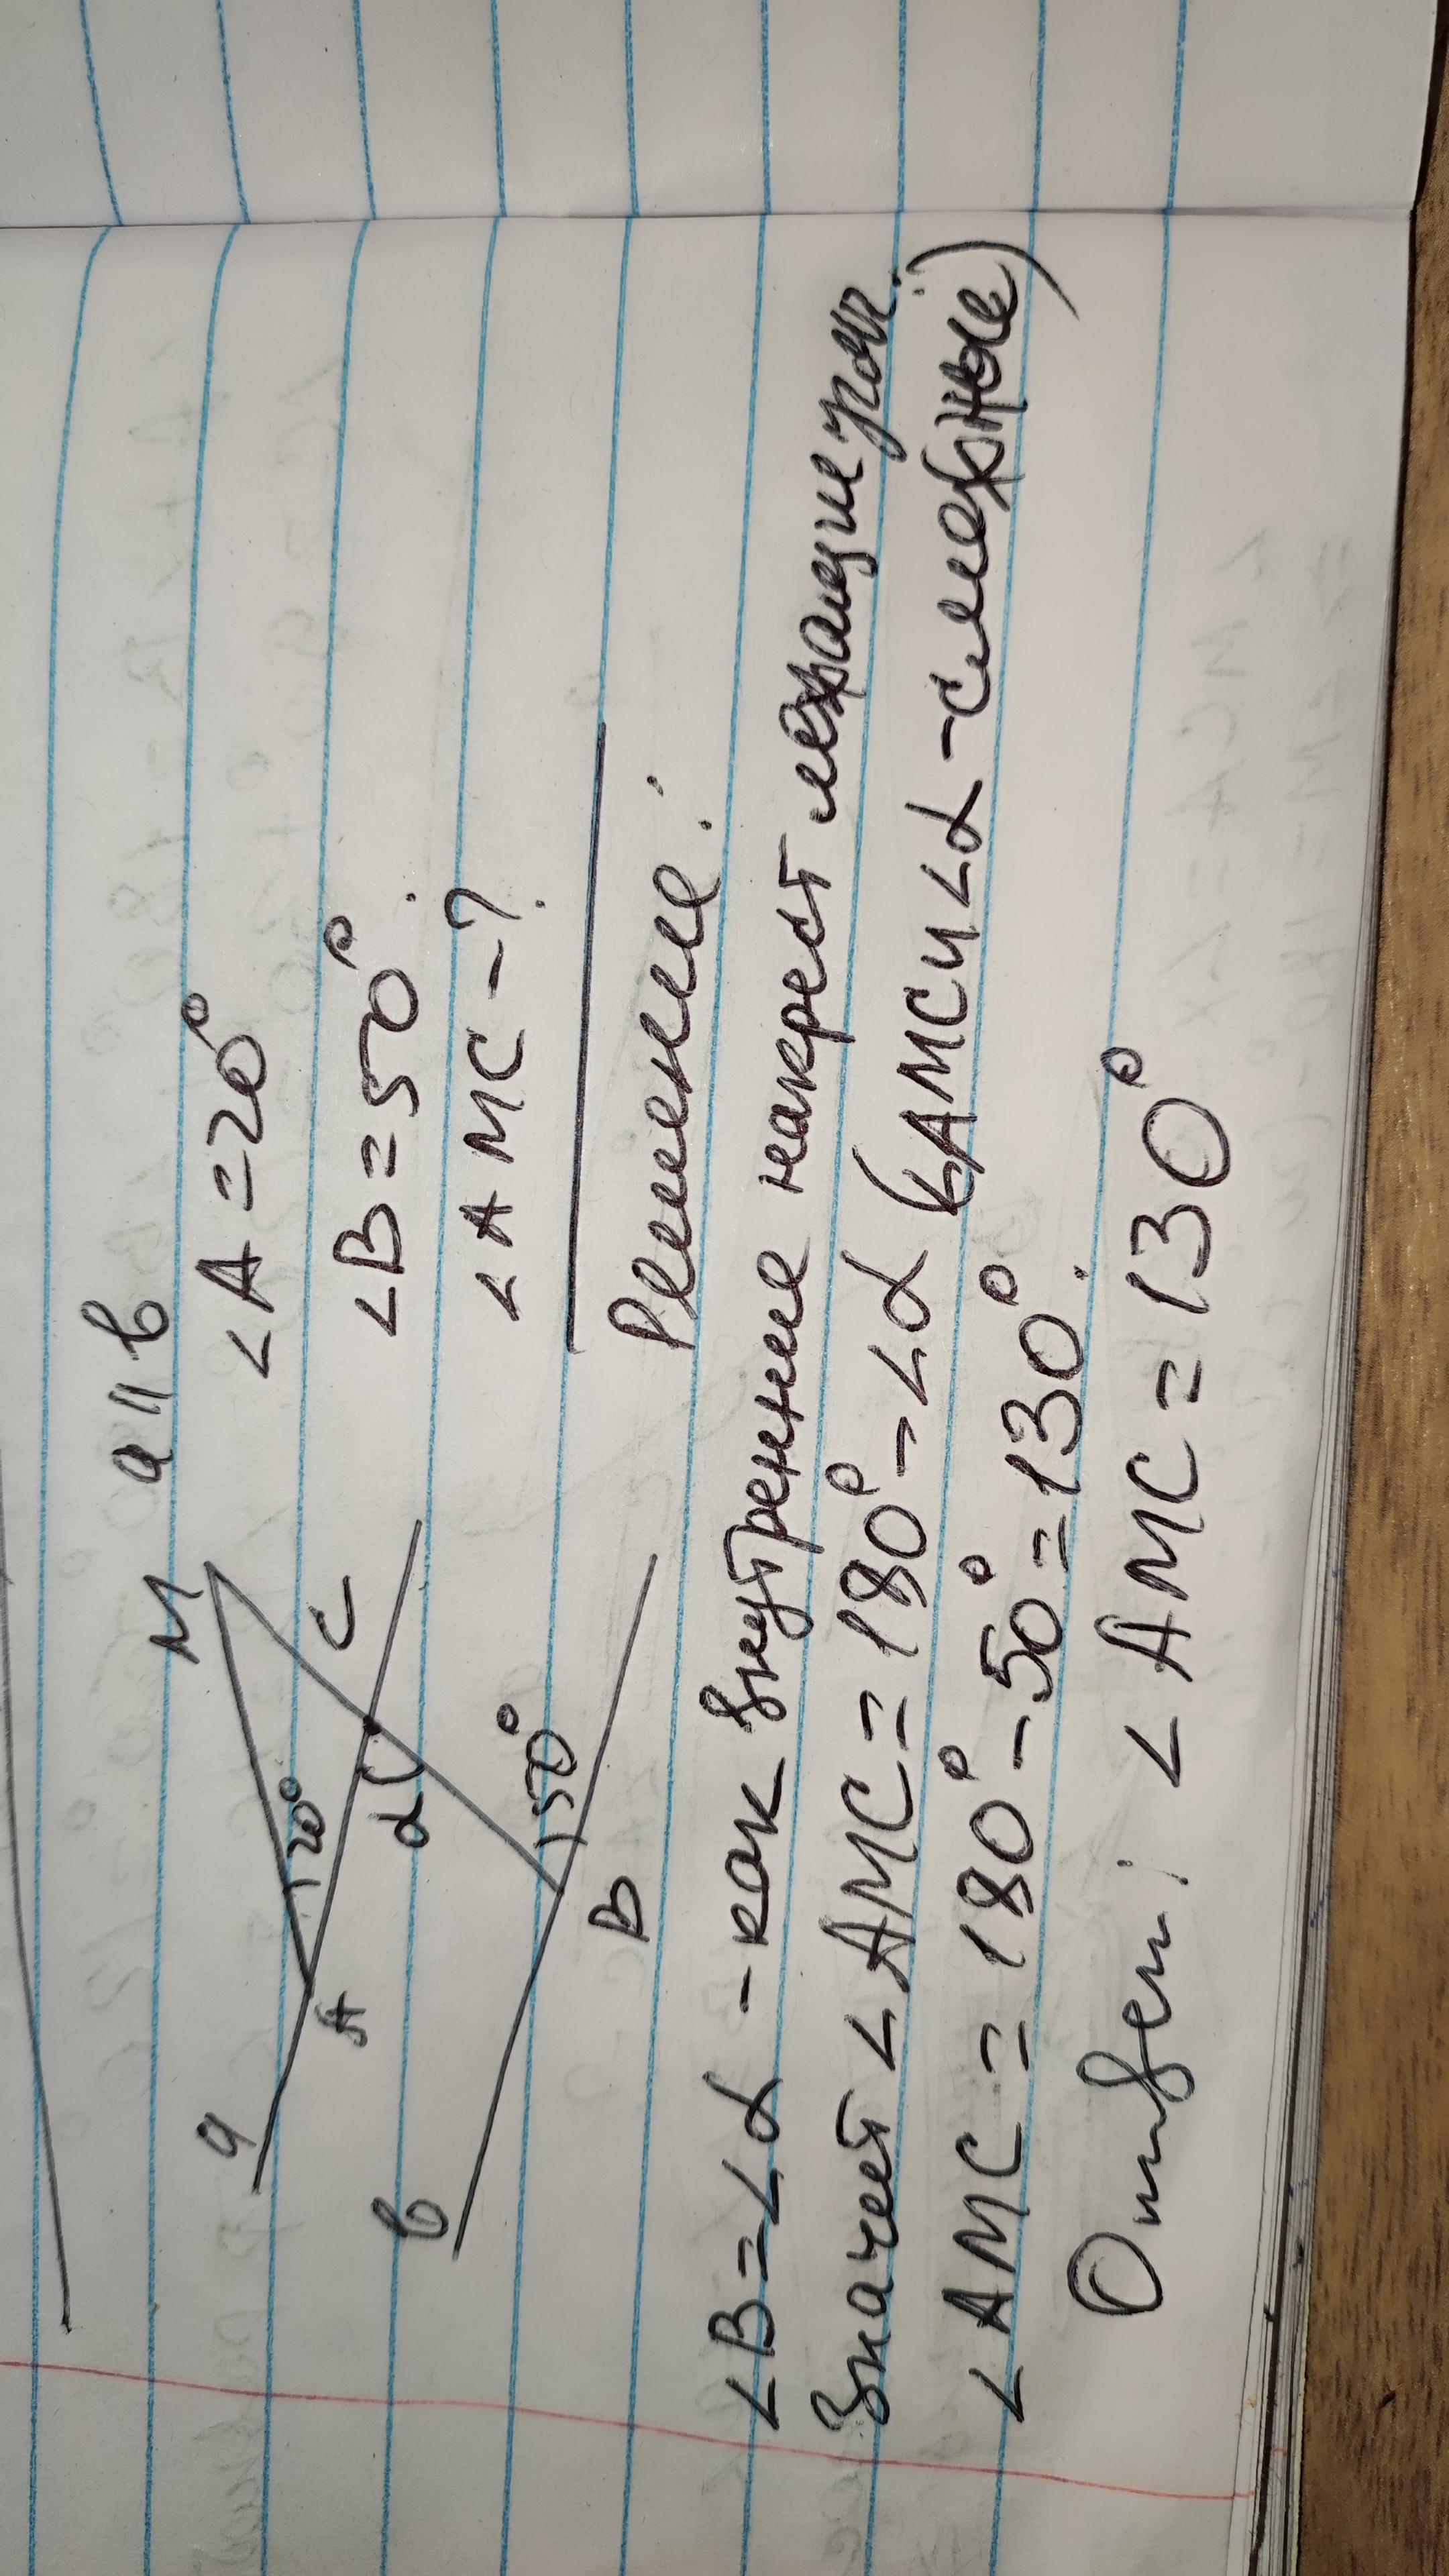 a || b
∠A = 20°
∠B = 50°.
∠AMC - ?
M
a
20°
A
C
α
b
50°
B
Решение:
∠B = ∠α - как внутренние накрест лежащие угол.
Значет ∠AMC = 180° - ∠α (∠AMC и ∠α - смежные)
∠AMC = 180° - 50° = 130°.
Ответ: ∠AMC = 130°